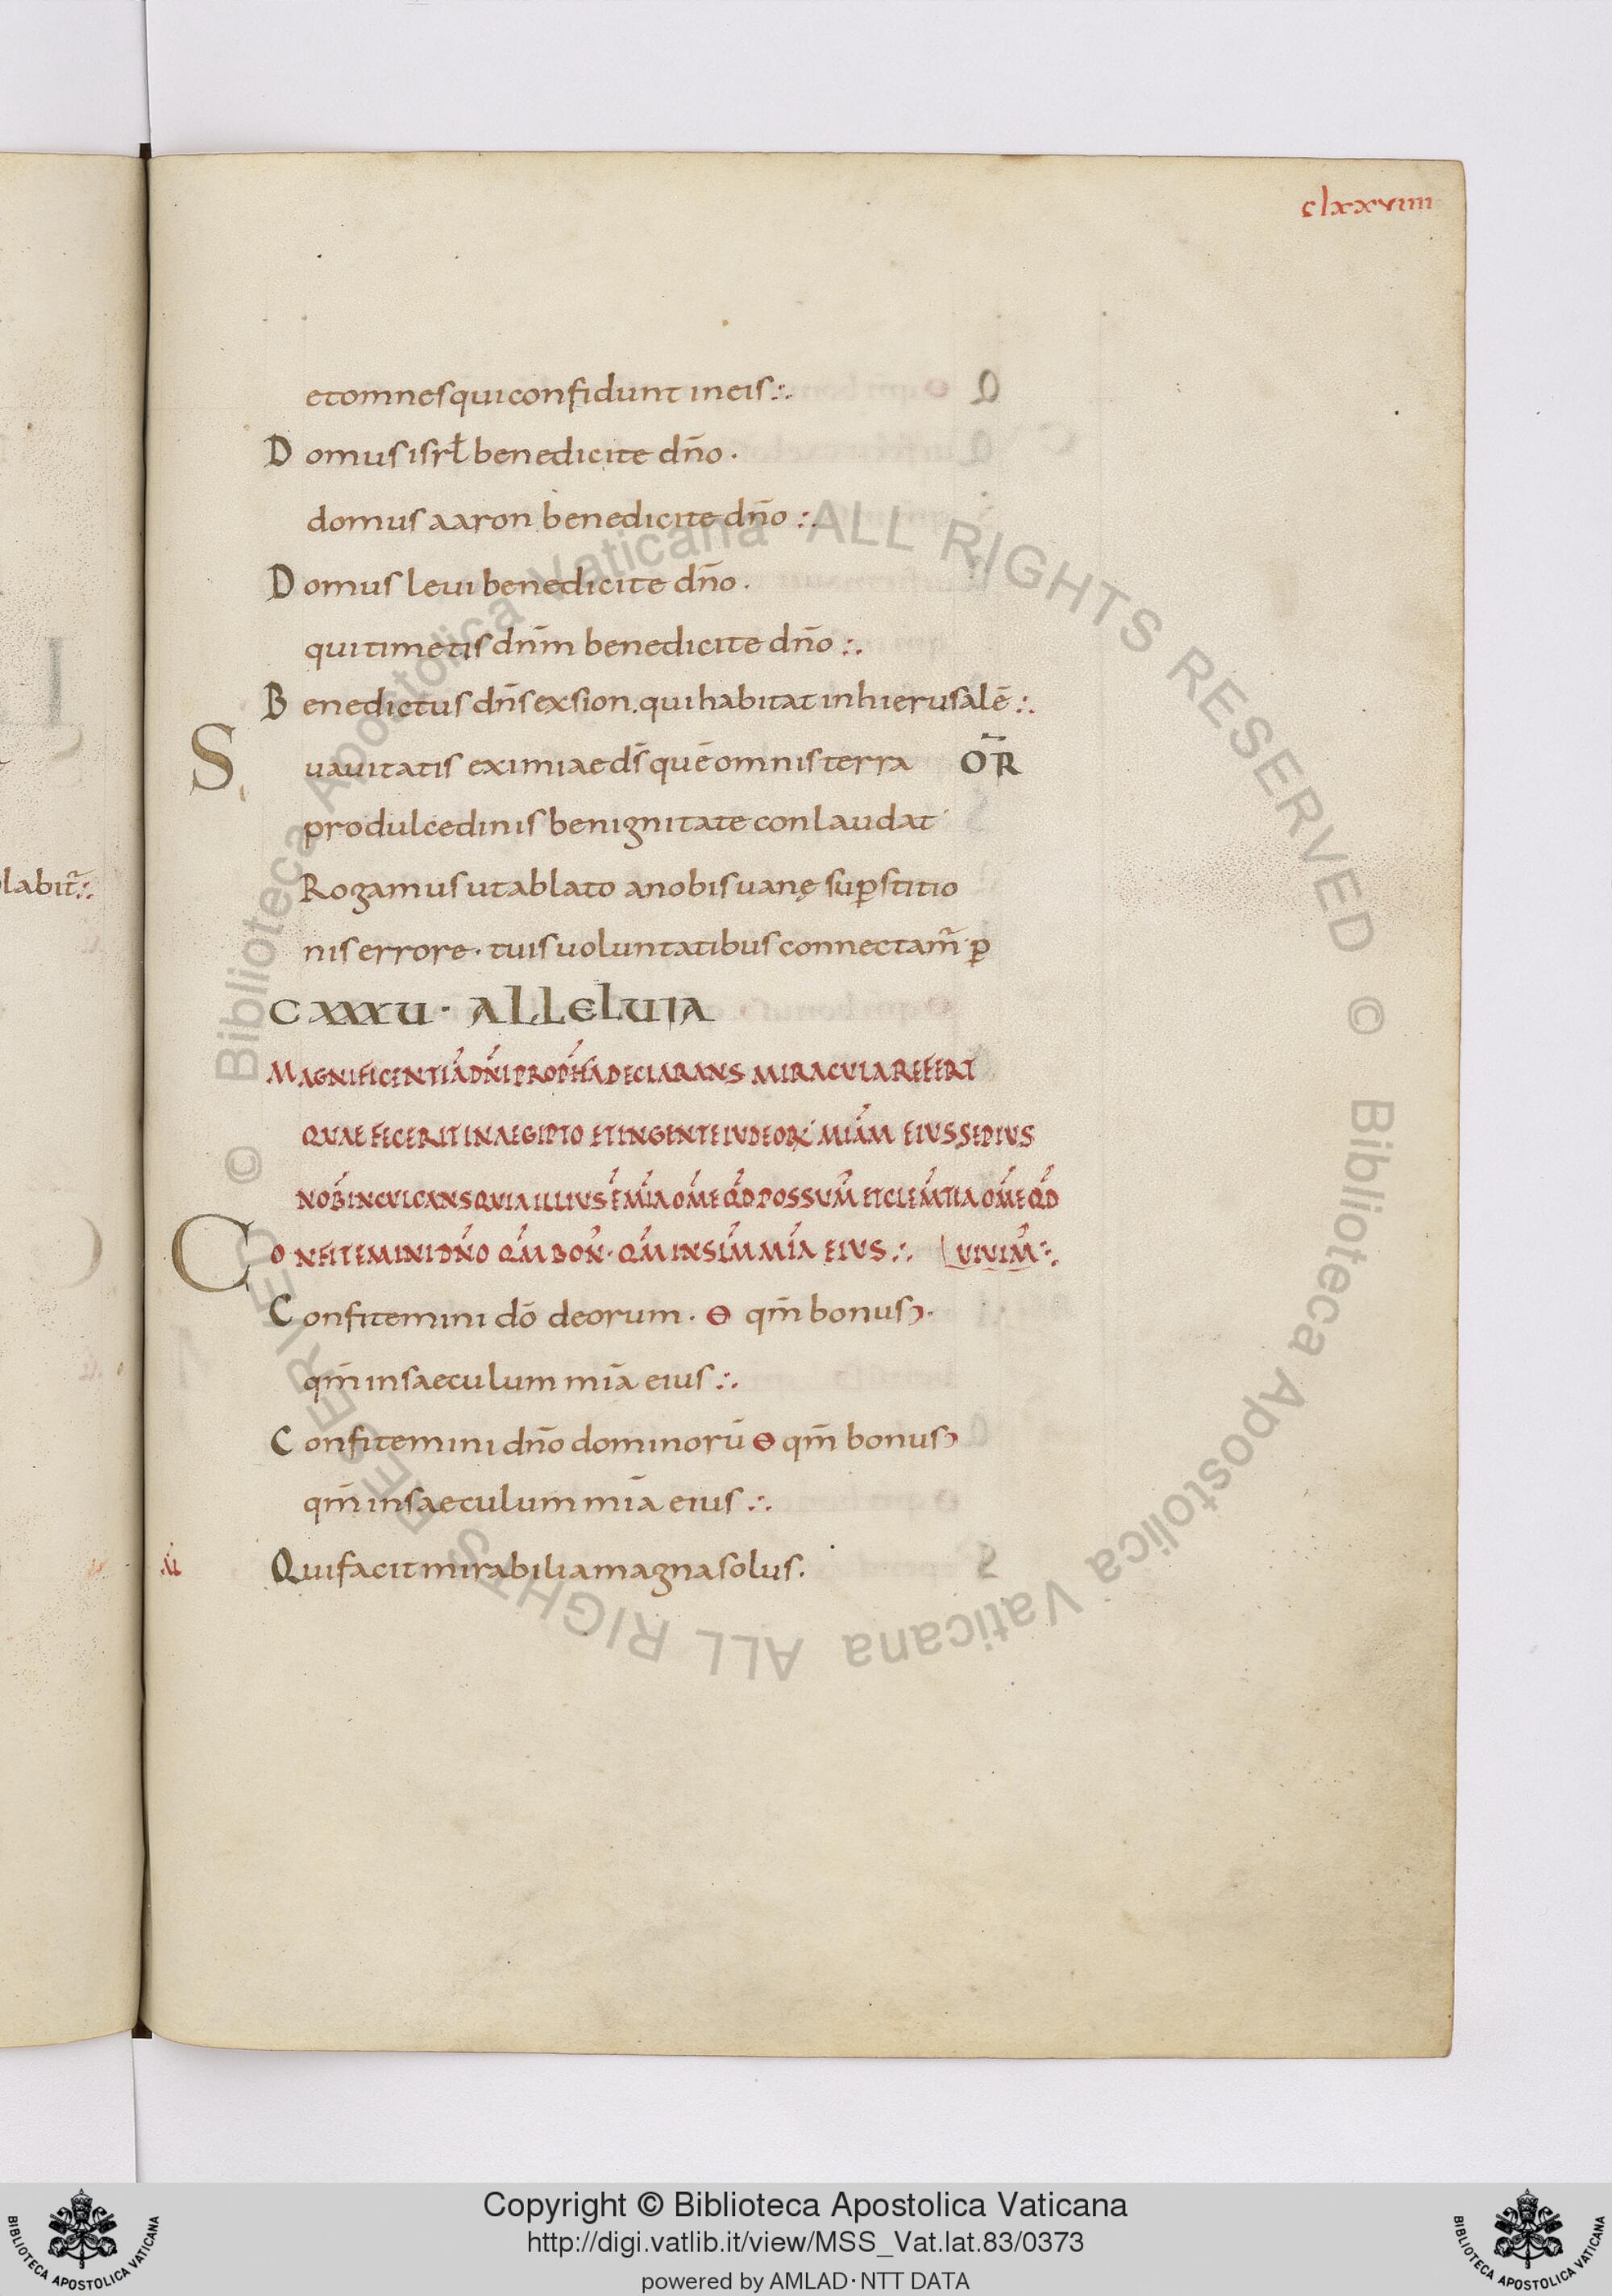 clxxxviiii
et omnes qui confidunt in eis:.
Domus isrł benedicite dño.
domus aaron benedicite dño:.
Domus levi benedicite dño.
qui timetis dnm̄ benedicite dño:.
Benedictus dñs ex sion. qui habitat in hierusalē:.
Suavitatis eximiae ds̄ quē omnis terra OR̄
pro dulcedinis benignitate conlaudat
Rogamus ut ablato a nobis vanę sup̱stitio
nis errore. tuis voluntatibus connectam̄ p̱
CXXXU· ALLELUIA
MAGNIFICENTIĀ DN̄I PROPH̄A DECLARANS MIRACULA REFERT
QUAE FECERIT IN AEGIPTO ET IN GENTE IUDEOR̄ MIAM̄ EIUS SEPIUS
NOB̄ INCULCANS QUIA ILLIUS Ē MĪA OM̄E QD̄ POSSUM̄ ET CLEM̄TIA OM̄E QD̄
CONFITEMINI DÑO QM̄ BON̄· QM̄ IN SLM̄ MĪA EIUS:. UIUIM̄:.
Confitemini dō deorum. ɵ qm̄ bonus
qm̄ in saeculum mīa eius:.
Confitemini dño dominorū ɵ qm̄ bonus
qm̄ in saeculum mīa eius:.
Qui facit mirabilia magna solus.
labit̄:.
© Biblioteca Apostolica Vaticana ALL RIGHTS RESERVED © Biblioteca Apostolica Vaticana ALL RIGHTS RESERVED
Copyright © Biblioteca Apostolica Vaticana
http://digi.vatlib.it/view/MSS_Vat.lat.83/0373
powered by AMLAD·NTT DATA
BIBLIOTECA APOSTOLICA VATICANA
BIBLIOTECA APOSTOLICA VATICANA